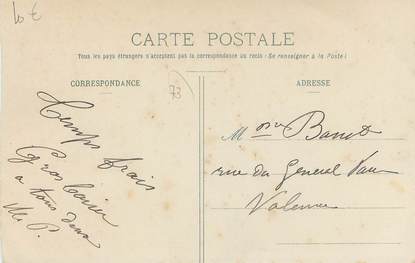 10 €
CARTE POSTALE
Tous les pays étrangers n'acceptent pas la correspondance au recto (Se renseigner à la Poste)
CORRESPONDANCE
ADRESSE
73
Temps frais
Gros baiser
a tous deux
M. P.
rue du General
Valence